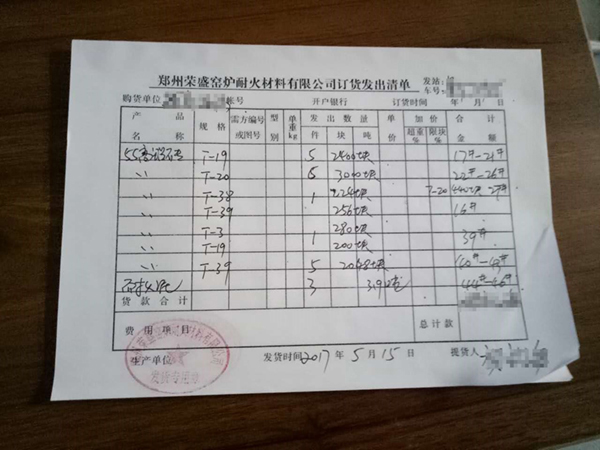 郑州荣盛窑炉耐火材料有限公司订货发出清单
发站:
车号:
购货单位 帐号 开户银行 订货时间 年 月 日
产品名称 规格 需方编号或图号 型别 单重kg 发出数量 件 块 吨 单价 加价 超重% 限块% 合计金额
T-19 5 2400块 17#-21#
〃 T-20 6 3000块 22#-26#
〃 T-38 1 224块 T-20 440块 27#
〃 T-39 256块 16#
〃 T-3 1 280块 39#
〃 T-19 200块
〃 T-39 5 2048块
3 44#-46#
货款合计
费用项目 总计款
生产单位 发货时间 2017 年 5 月 15 日 提货人
发货专用章